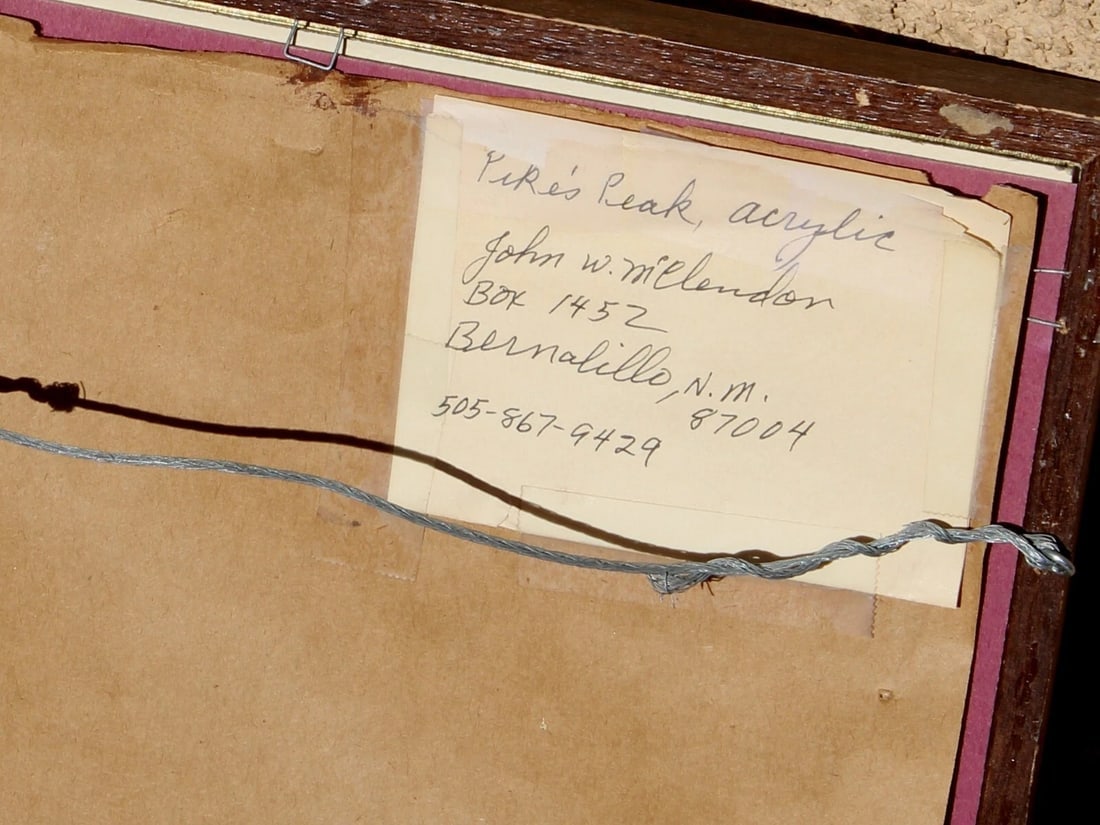 Pike's Peak, acrylic
John W. McClendon
Box 1452
Bernalillo, N.M.
87004
505-867-9429